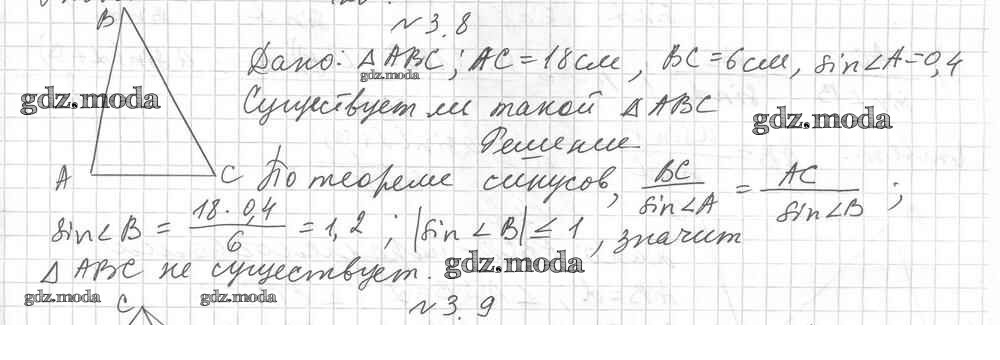 №3.8
B
Дано: △ABC; AC=18см, BC=6см, sin∠A=0,4
gdz.moda
gdz.moda
Существует ли такой △ABC
gdz.moda
Решение
A
C
По теореме синусов, BC/sin∠A = AC/sin∠B ;
sin∠B = 18·0,4/6 = 1,2 ; |sin∠B| ≤ 1, значит
△ABC не существует.
gdz.moda
gdz.moda
gdz.moda
C
№3.9